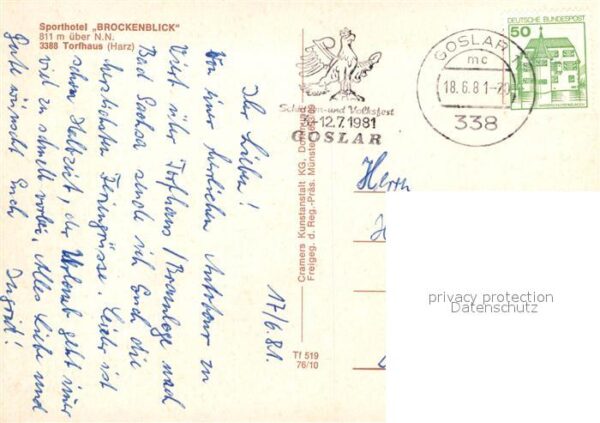 Sporthotel „BROCKENBLICK"
811 m über N.N.
3388 Torfhaus (Harz)
17/6.81.
Ihr Lieben!
Von einer herrlichen Autotour zu
Vieit über Torfhaus / Braunlage nach
Bad Sachsa sende ich Euch die
herzlichsten Feriengrüsse. Leider ist
schon Halbzeit, der Urlaub geht immer
viel zu schnell vorbei. Alles Liebe und
Gute wünscht Euch
Ingrid!
Cramers Kunstanstalt KG, Dortmund
Freigeg. d. Reg.-Präs. Münster
Tf 519
76/10
Schützen-und Volksfest
-12.7.1981
GOSLAR
GOSLAR 1
mc
18.6.81-20
338
DEUTSCHE BUNDESPOST
50
Herrn
privacy protection
Datenschutz